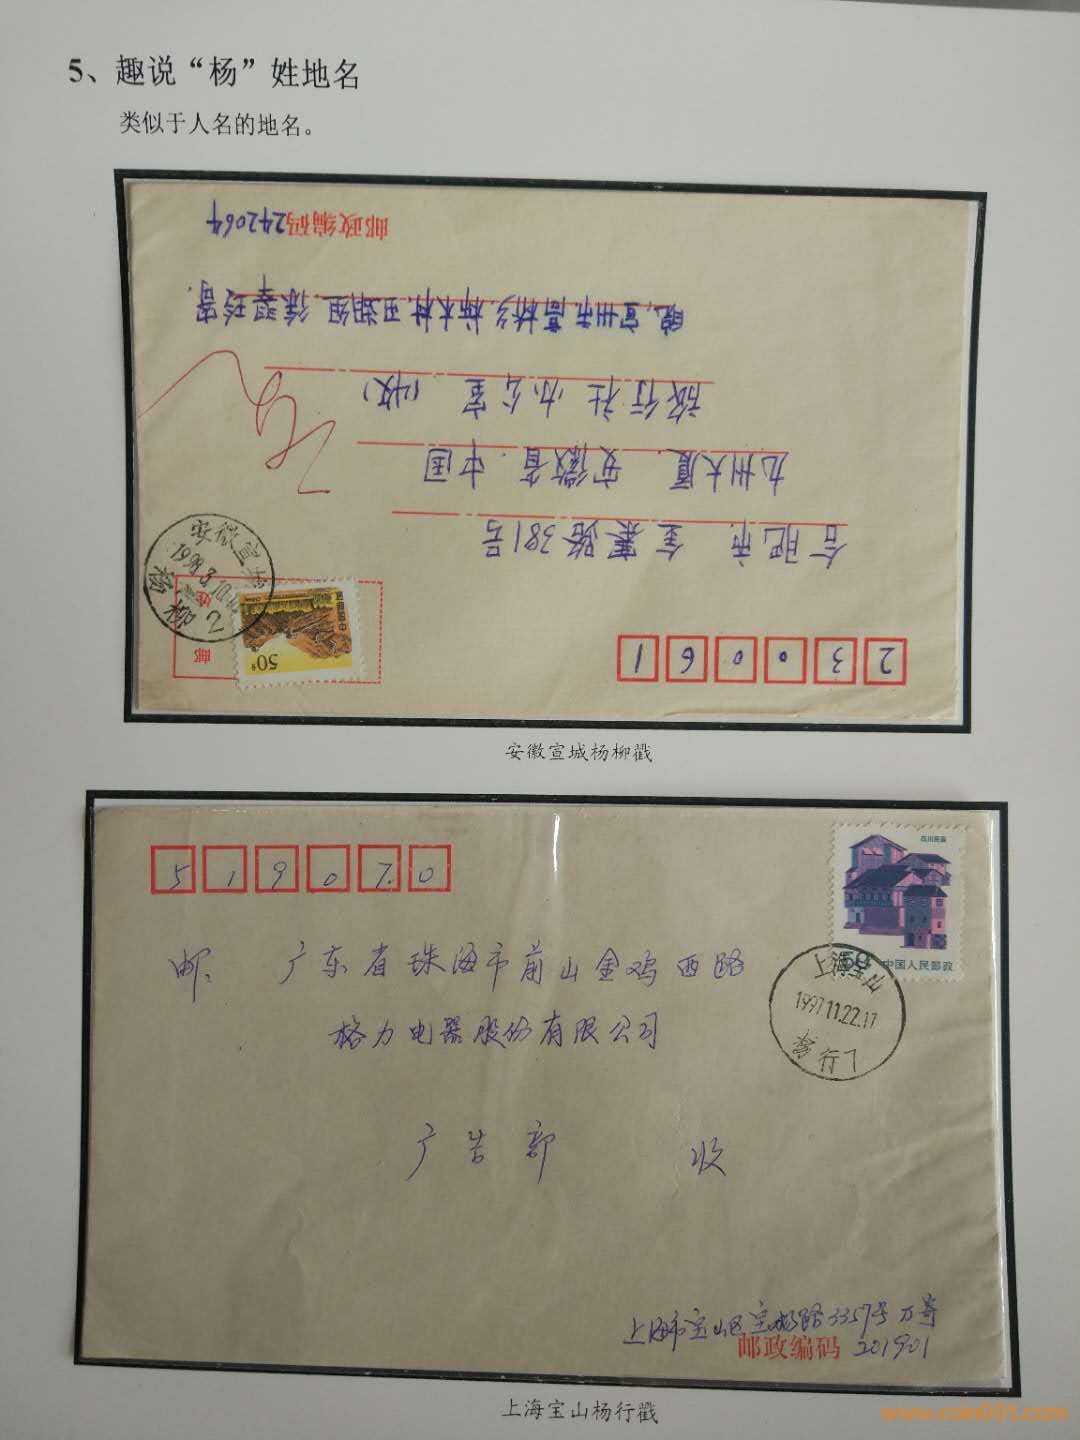 5、趣说“杨”姓地名
类似于人名的地名。
邮政编码242064
皖宣州市高桥乡
旅行社 办公室(收)
九州大厦 安徽省 中国
合肥市 金寨路381号
安徽宣城
1998.8.10
杨柳 2
邮
50分
中国邮政
230061
安徽宣城杨柳戳
519070
四川民居
中国人民邮政
邮: 广东省珠海市前山金鸡西路
格力电器股份有限公司
上海宝山
1997.11.22.17
杨行 1
广告部 收
上海市宝山区宝城路3357号 万寄
邮政编码 201901
上海宝山杨行戳
www.coin001.com